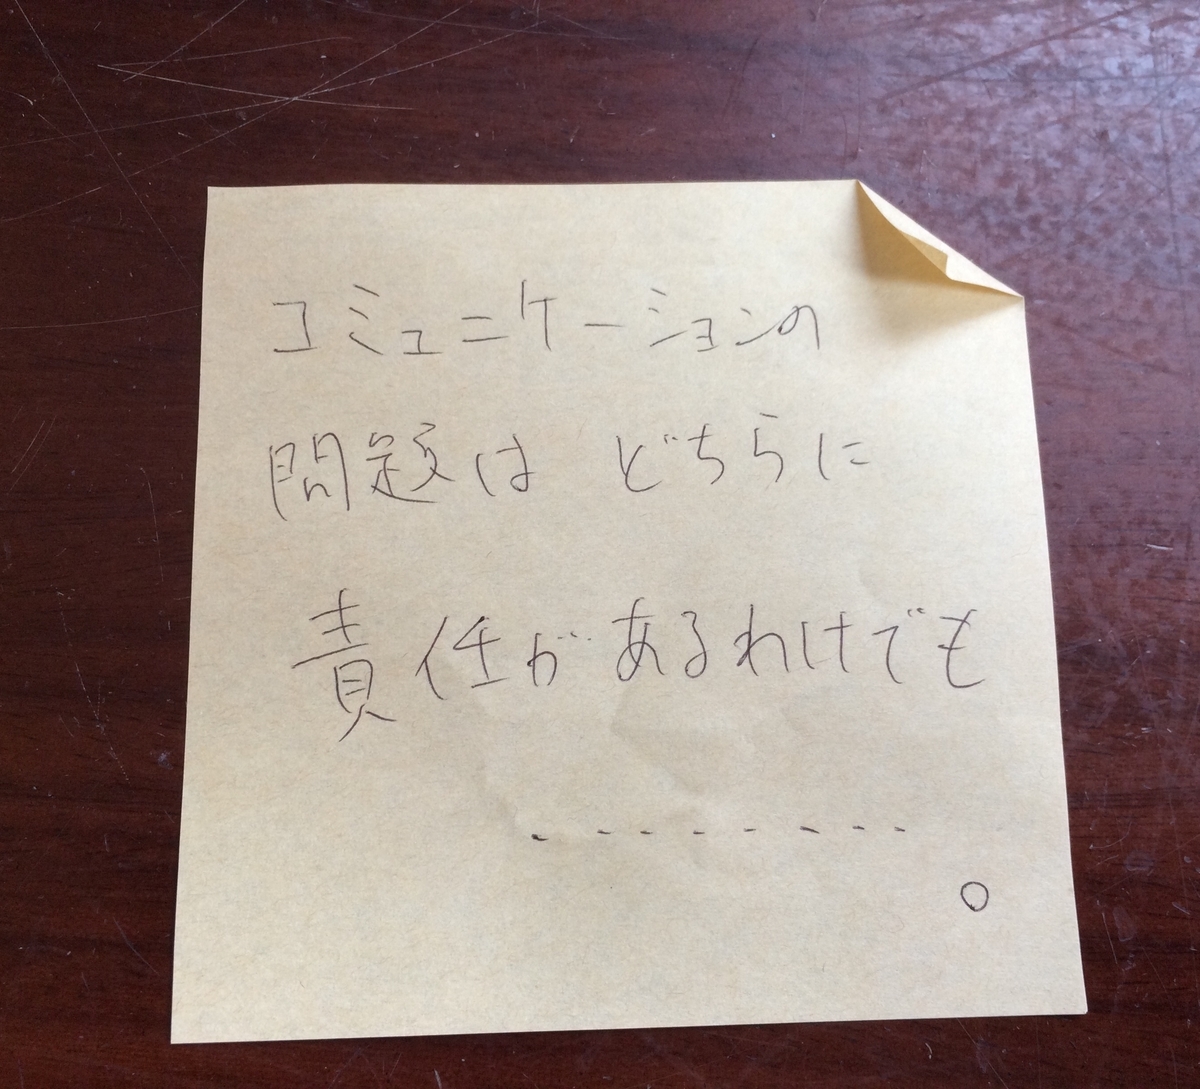 コミュニケーションの
問題は どちらに
責任があるわけでも
- - - - - - - -
。